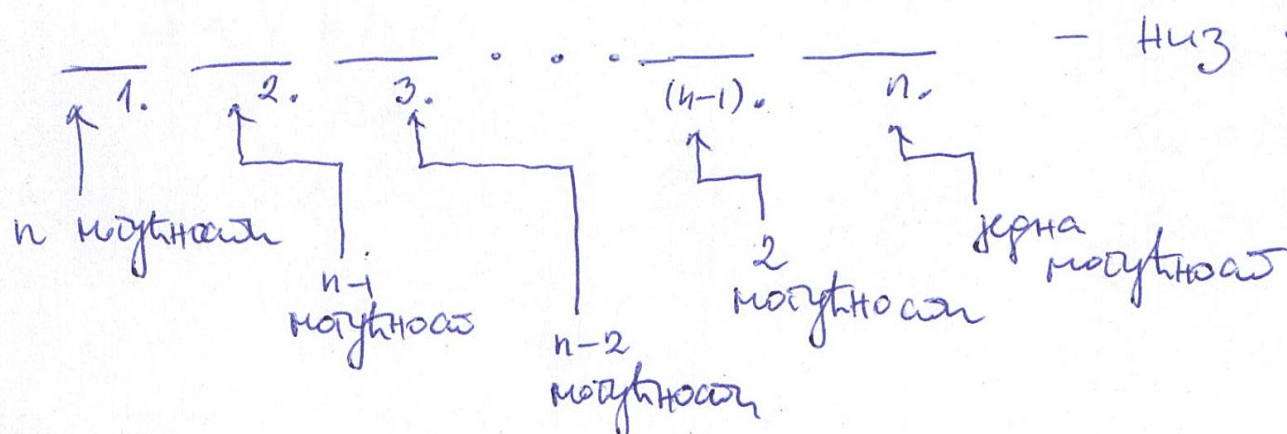 — низ
1. 2. 3. . . . (n-1). n.
n могућности
n-1 могућност
n-2 могућности
2 могућности
једна могућност